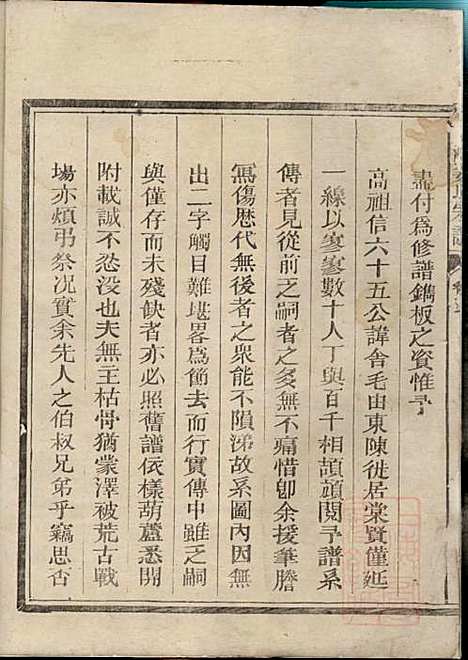 盡付爲修譜鐫板之資惟予
高祖信六十五公諱舍毛由東陳徙居棠賢僅延
一線以寥寥數十人丁與百千相頡頏閱予譜系
傳者見從前之嗣者之多無不痛惜卽余援筆謄
寫傷歷代無後者之衆能不隕涕故系圖內因無
出二字觸目難堪畧爲節去而行實傳中雖乏嗣
與僅存而未殘缺者亦必照舊譜依樣葫蘆悉開
附載誠不忍没也夫無主枯骨猶蒙澤被荒古戰
場亦煩弔祭况實余先人之伯叔兄弟乎竊思吾